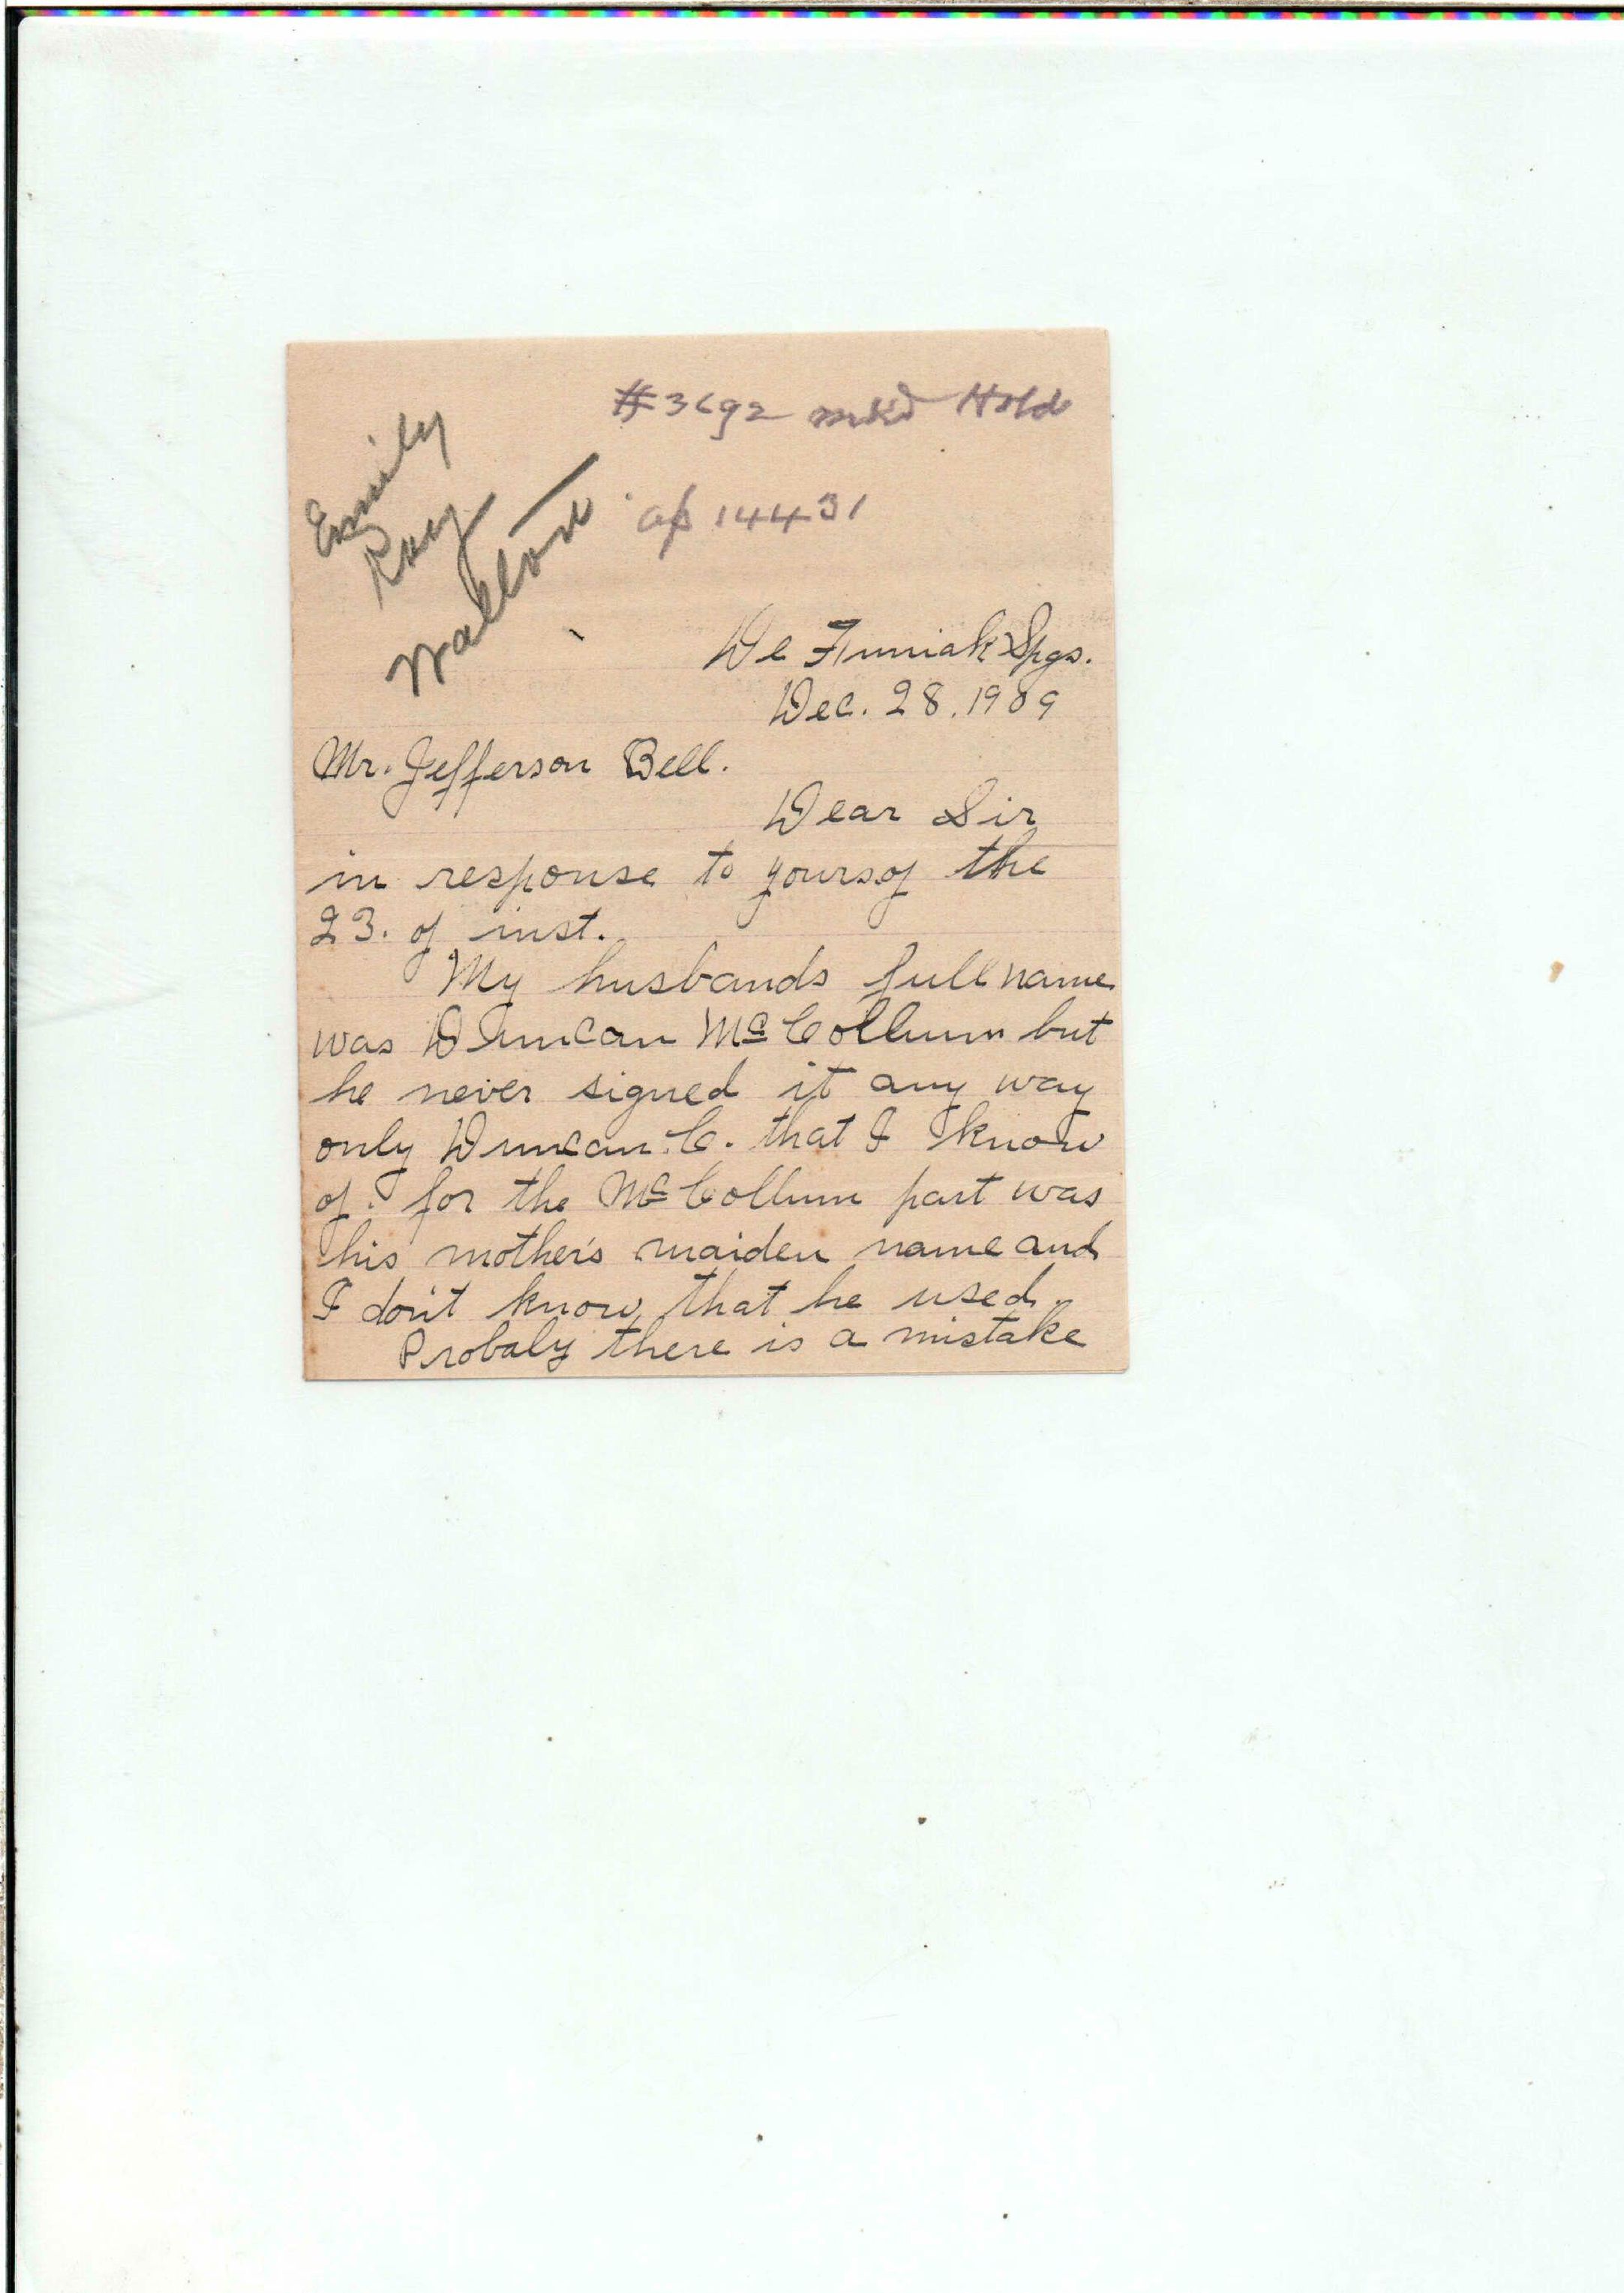 #3692 mkd Hold
Emily
Ray
Walton
ap 14431
De Funiak Spgs.
Dec. 28. 1909
Mr. Jefferson Bell.
Dear Sir
in response to yours of the
23. of inst.
My husbands full name
was Duncan McCollum but
he never signed it any way
only Duncan. C. that I know
of. for the McCollum part was
his mother's maiden name and
I don't know that he used.
Probaly there is a mistake